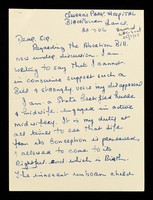 Queens Park Hospital
Blackburn
Lancs.
Dear Sir,
Regarding the Abortion Bill
now under discussion. I am
writing to say that I cannot
in conscience support such a
Bill & strongly voice my disapproval
I am a State Certified Nurse
& Midwife, engaged in active
midwifery. It is my duty at
all times to see that life
from its Conception is preserved,
& allowed to come to its
Rightful end which is Birth
The innocent unborn child